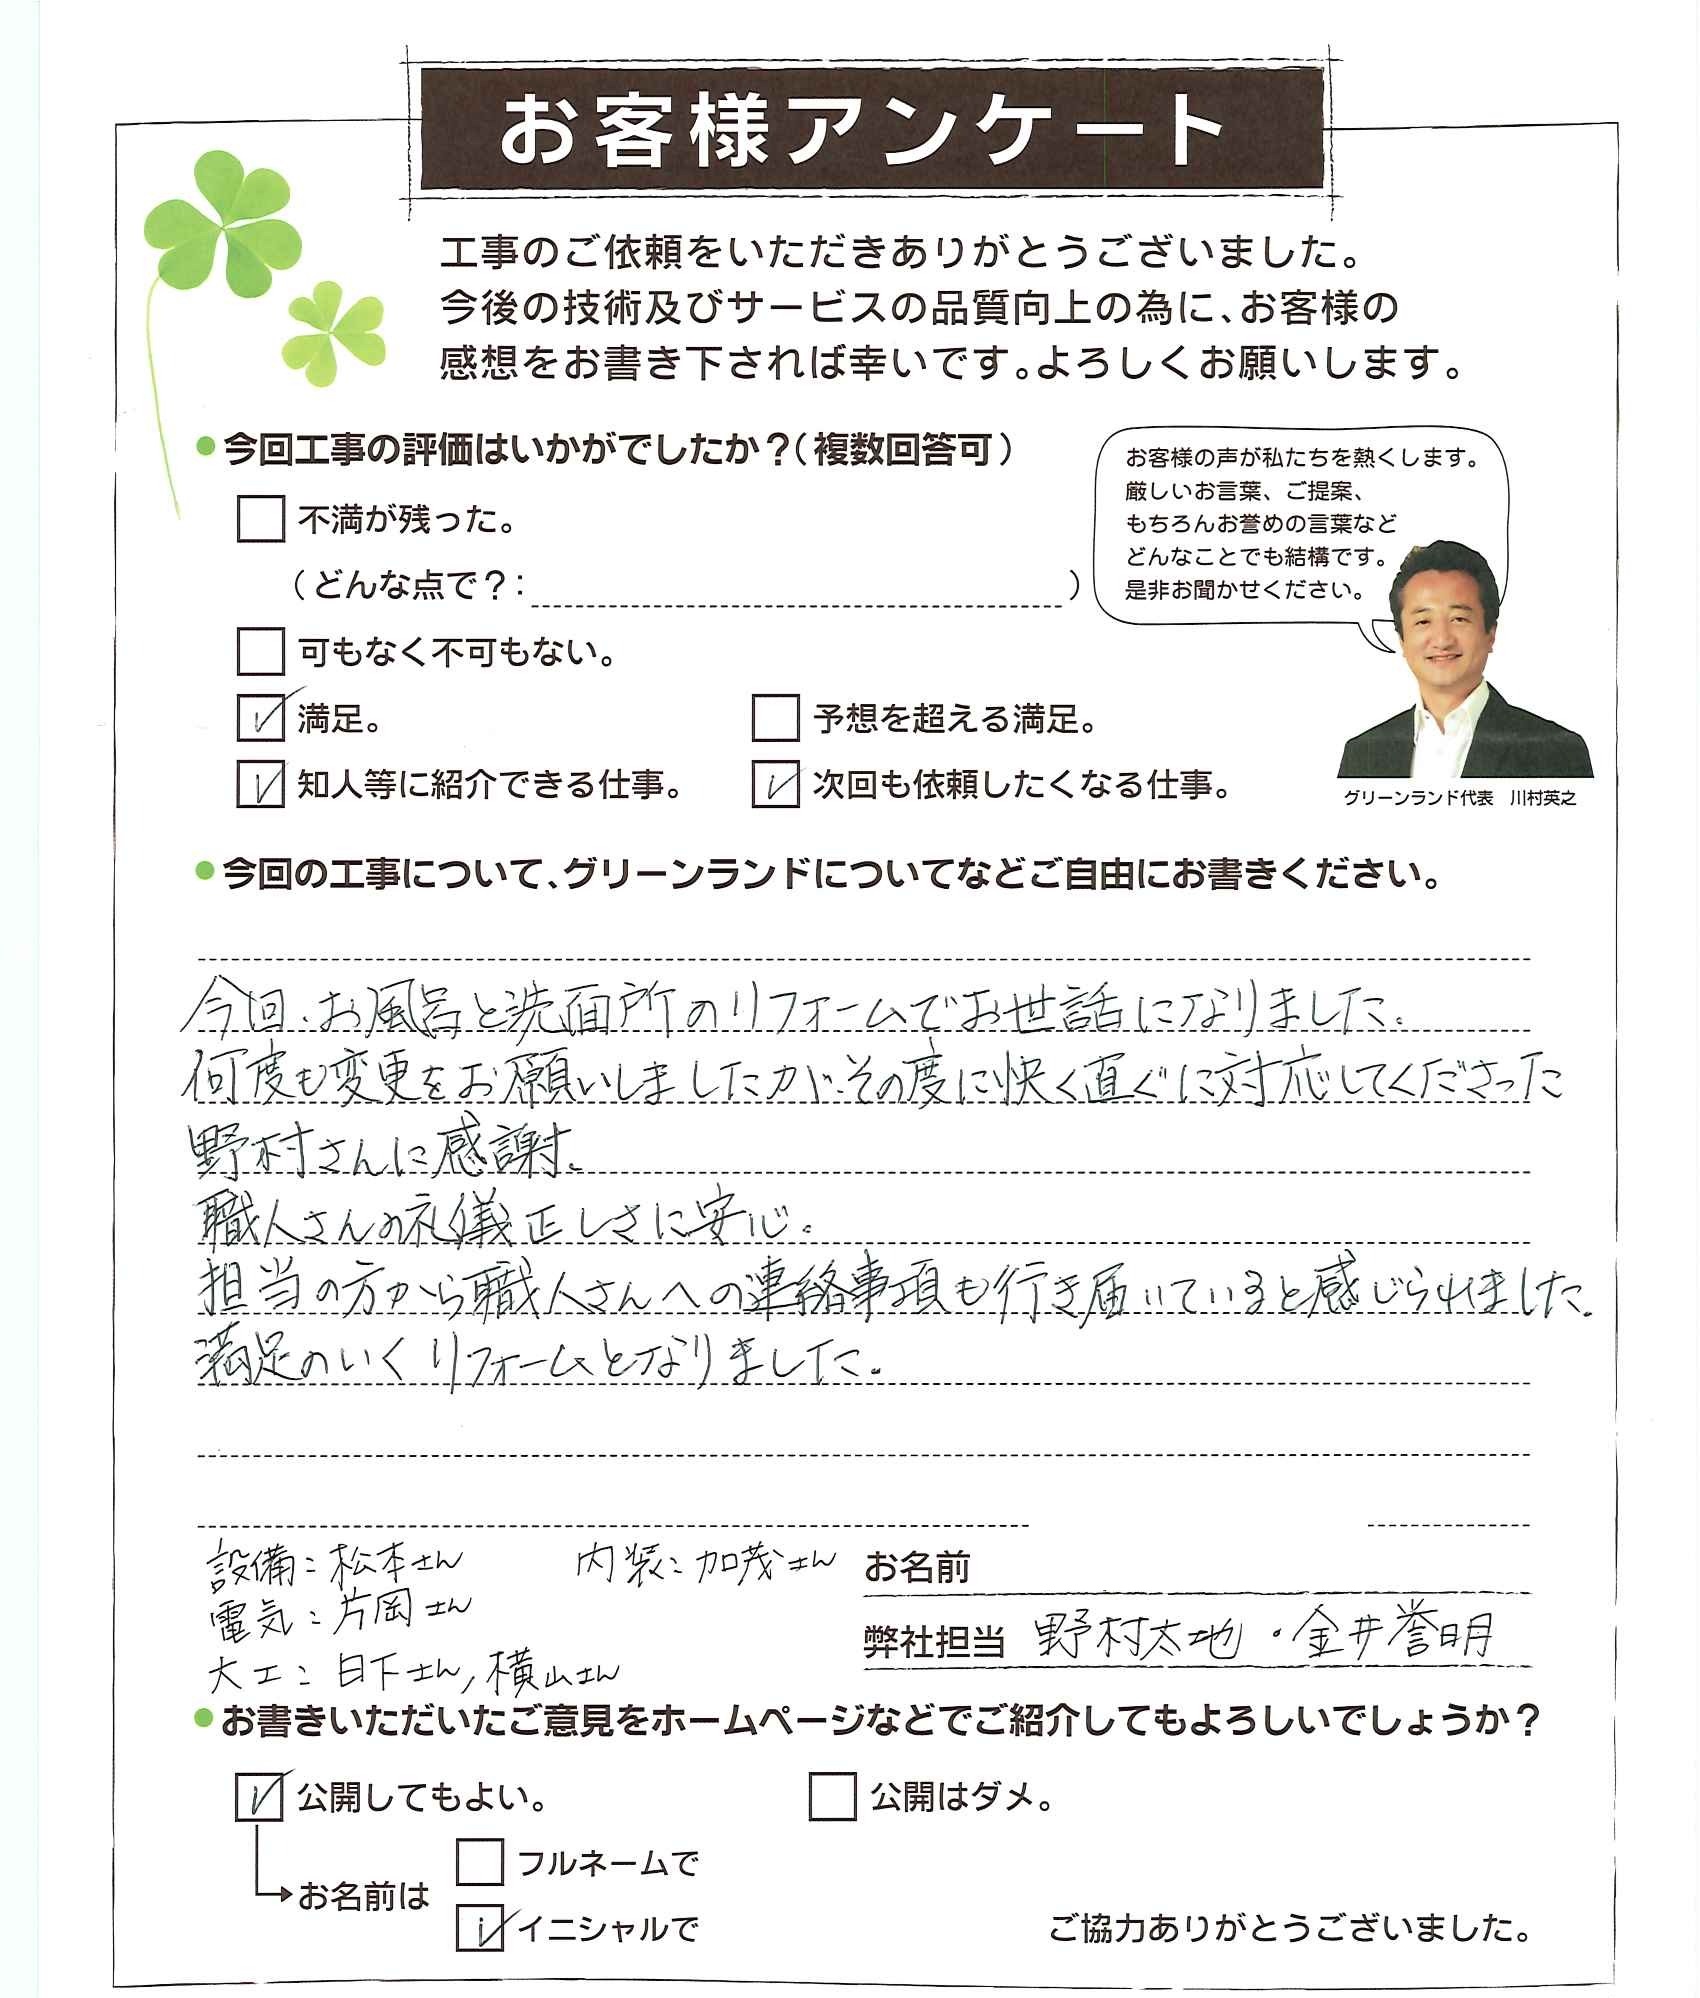 お客様アンケート
工事のご依頼をいただきありがとうございました。
今後の技術及びサービスの品質向上の為に、お客様の
感想をお書き下されば幸いです。よろしくお願いします。
●今回工事の評価はいかがでしたか？（複数回答可）
お客様の声が私たちを熱くします。
厳しいお言葉、ご提案、
もちろんお誉めの言葉など
どんなことでも結構です。
是非お聞かせください。
不満が残った。
（どんな点で？：　）
可もなく不可もない。
満足。
予想を超える満足。
知人等に紹介できる仕事。
次回も依頼したくなる仕事。
グリーンランド代表　川村英之
●今回の工事について、グリーンランドについてなどご自由にお書きください。
今回、お風呂と洗面所のリフォームでお世話になりました。
何度も変更をお願いしましたが、その度に快く直ぐに対応してくださった
野村さんに感謝。
職人さんの礼儀正しさに安心。
担当の方から職人さんへの連絡事項も行き届いていると感じられました。
満足のいくリフォームとなりました。
設備：松本さん　内装：加茂さん
電気：片岡さん
大工：日下さん，横山さん
お名前
弊社担当　野村太地・金井誉明
●お書きいただいたご意見をホームページなどでご紹介してもよろしいでしょうか？
公開してもよい。
公開はダメ。
お名前は
フルネームで
イニシャルで
ご協力ありがとうございました。